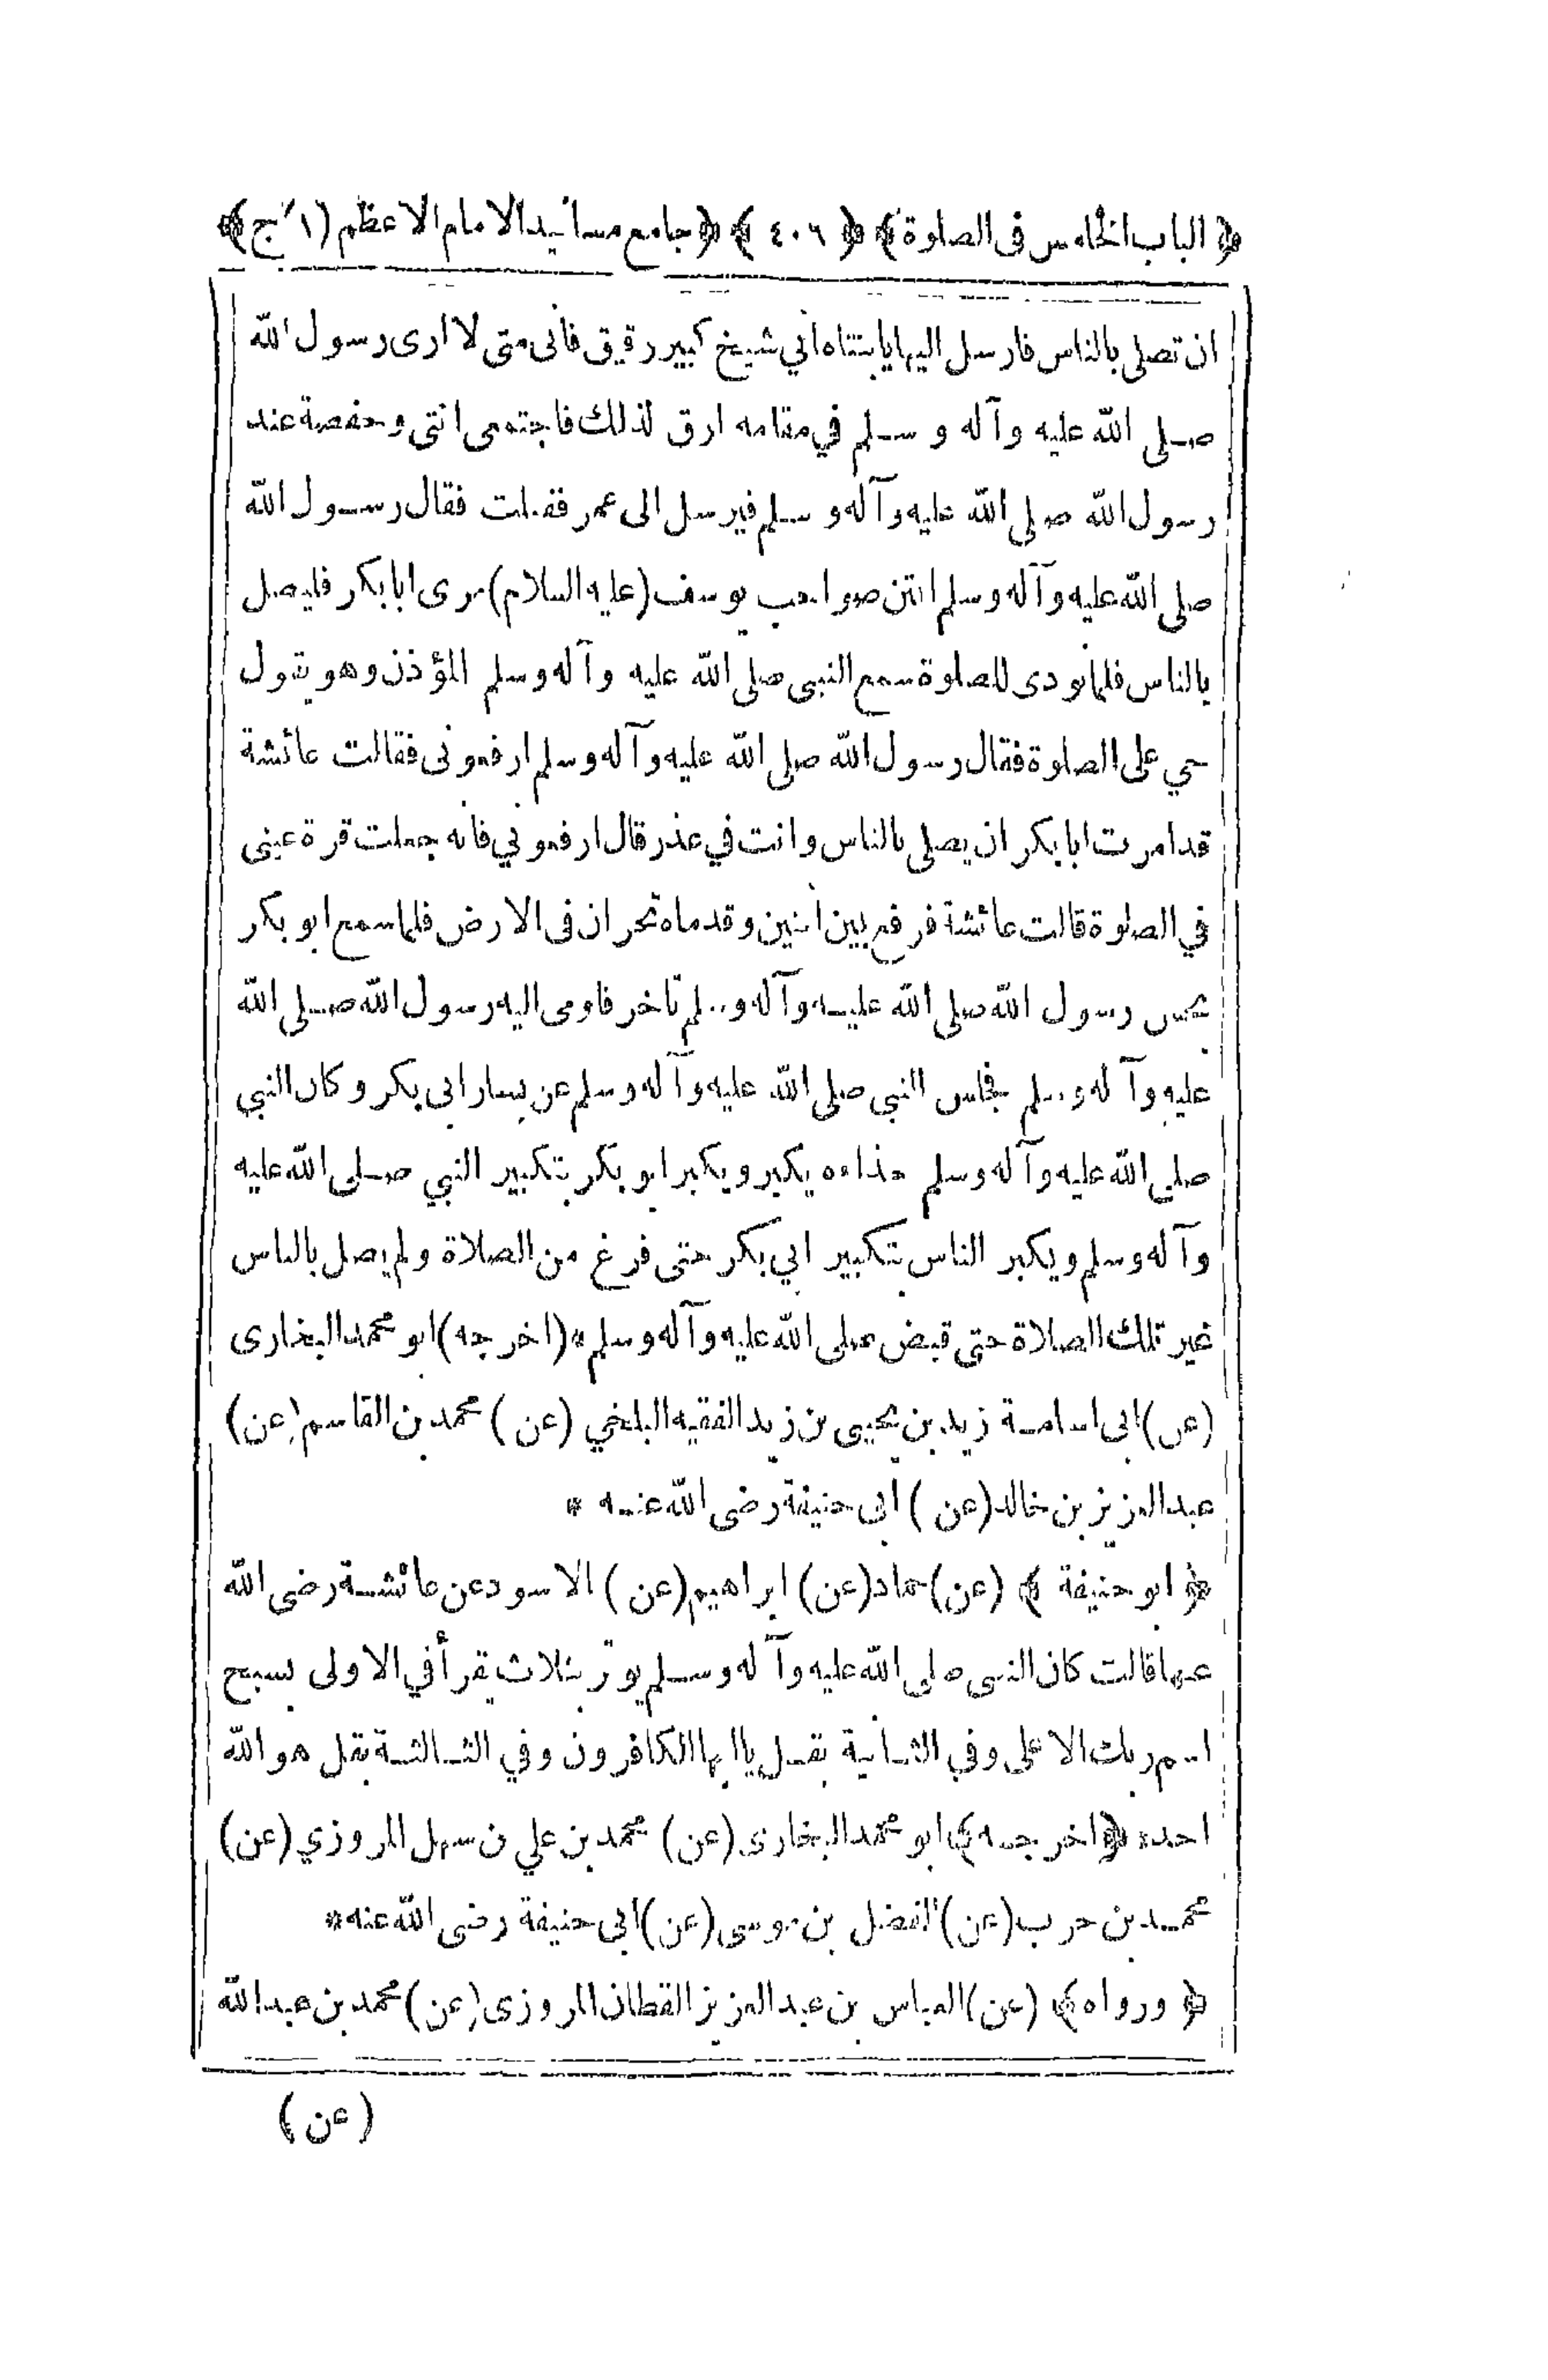 ﴿ الباب الخامس فى الصلوة ﴾ ﴿ ٤٠٦ ﴾ ﴿ جامع مسانيد الامام الاعظم (ج ١) ﴾
ان تصلى بالناس فارسل اليها يا بنتاه اني شيخ كبير رقيق فانى متى لا ارى رسول الله
صلى الله عليه وآله و سلم في مقامه ارق لذلك فاجتمعى انتى وحفصة عند
رسول الله صلى الله عليه وآله و سلم فيرسل الى عمر ففعلت فقال رسول الله
صلى الله عليه وآله وسلم انتن صواحب يوسف (عليه السلام) مرى ابا بكر فليصل
بالناس فلما نودى للصلوة سمع النبى صلى الله عليه وآله وسلم المؤذن وهو يقول
حي على الصلوة فقال رسول الله صلى الله عليه وآله وسلم ارفعونى فقالت عائشة
قد امرت ابا بكر ان يصلى بالناس وانت في عذر قال ارفعوني فانه جعلت قرة عينى
في الصلوة قالت عائشة فرفع بين اثنين وقدماه تخران فى الارض فلما سمع ابو بكر
بحس رسول الله صلى الله عليه وآله وسلم تاخر فاومى اليه رسول الله صلى الله
عليه وآله وسلم فجلس النبي صلى الله عليه وآله وسلم عن يسار ابى بكر وكان النبي
صلى الله عليه وآله وسلم حذاءه يكبر ويكبر ابو بكر بتكبير النبي صلى الله عليه
وآله وسلم ويكبر الناس بتكبير ابي بكر حتى فرغ من الصلاة ولم يصل بالناس
غير تلك الصلاة حتى قبض صلى الله عليه وآله وسلم * (اخرجه) ابو محمد البخارى
(عن) ابى اسامة زيد بن يحيى بن زيد الفقيه البلخي (عن) محمد بن القاسم (عن)
عبد العزيز بن خالد (عن) ابى حنيفة رضى الله عنه *
﴿ ابو حنيفة ﴾ (عن) حماد (عن) ابراهيم (عن) الاسود عن عائشة رضى الله
عنها قالت كان النبى صلى الله عليه وآله وسلم يوتر بثلاث يقرأ في الاولى بسبح
اسم ربك الاعلى وفي الثانية بقل يا ايها الكافرون وفي الثالثة بقل هو الله
احد * ﴿ اخرجه ﴾ ابو محمد البخارى (عن) محمد بن علي بن سهل المروزي (عن)
محمد بن حرب (عن) الفضل بن موسى (عن) ابى حنيفة رضى الله عنه *
﴿ ورواه ﴾ (عن) العباس بن عبد العزيز القطان المروزى (عن) محمد بن عبد الله
(عن)